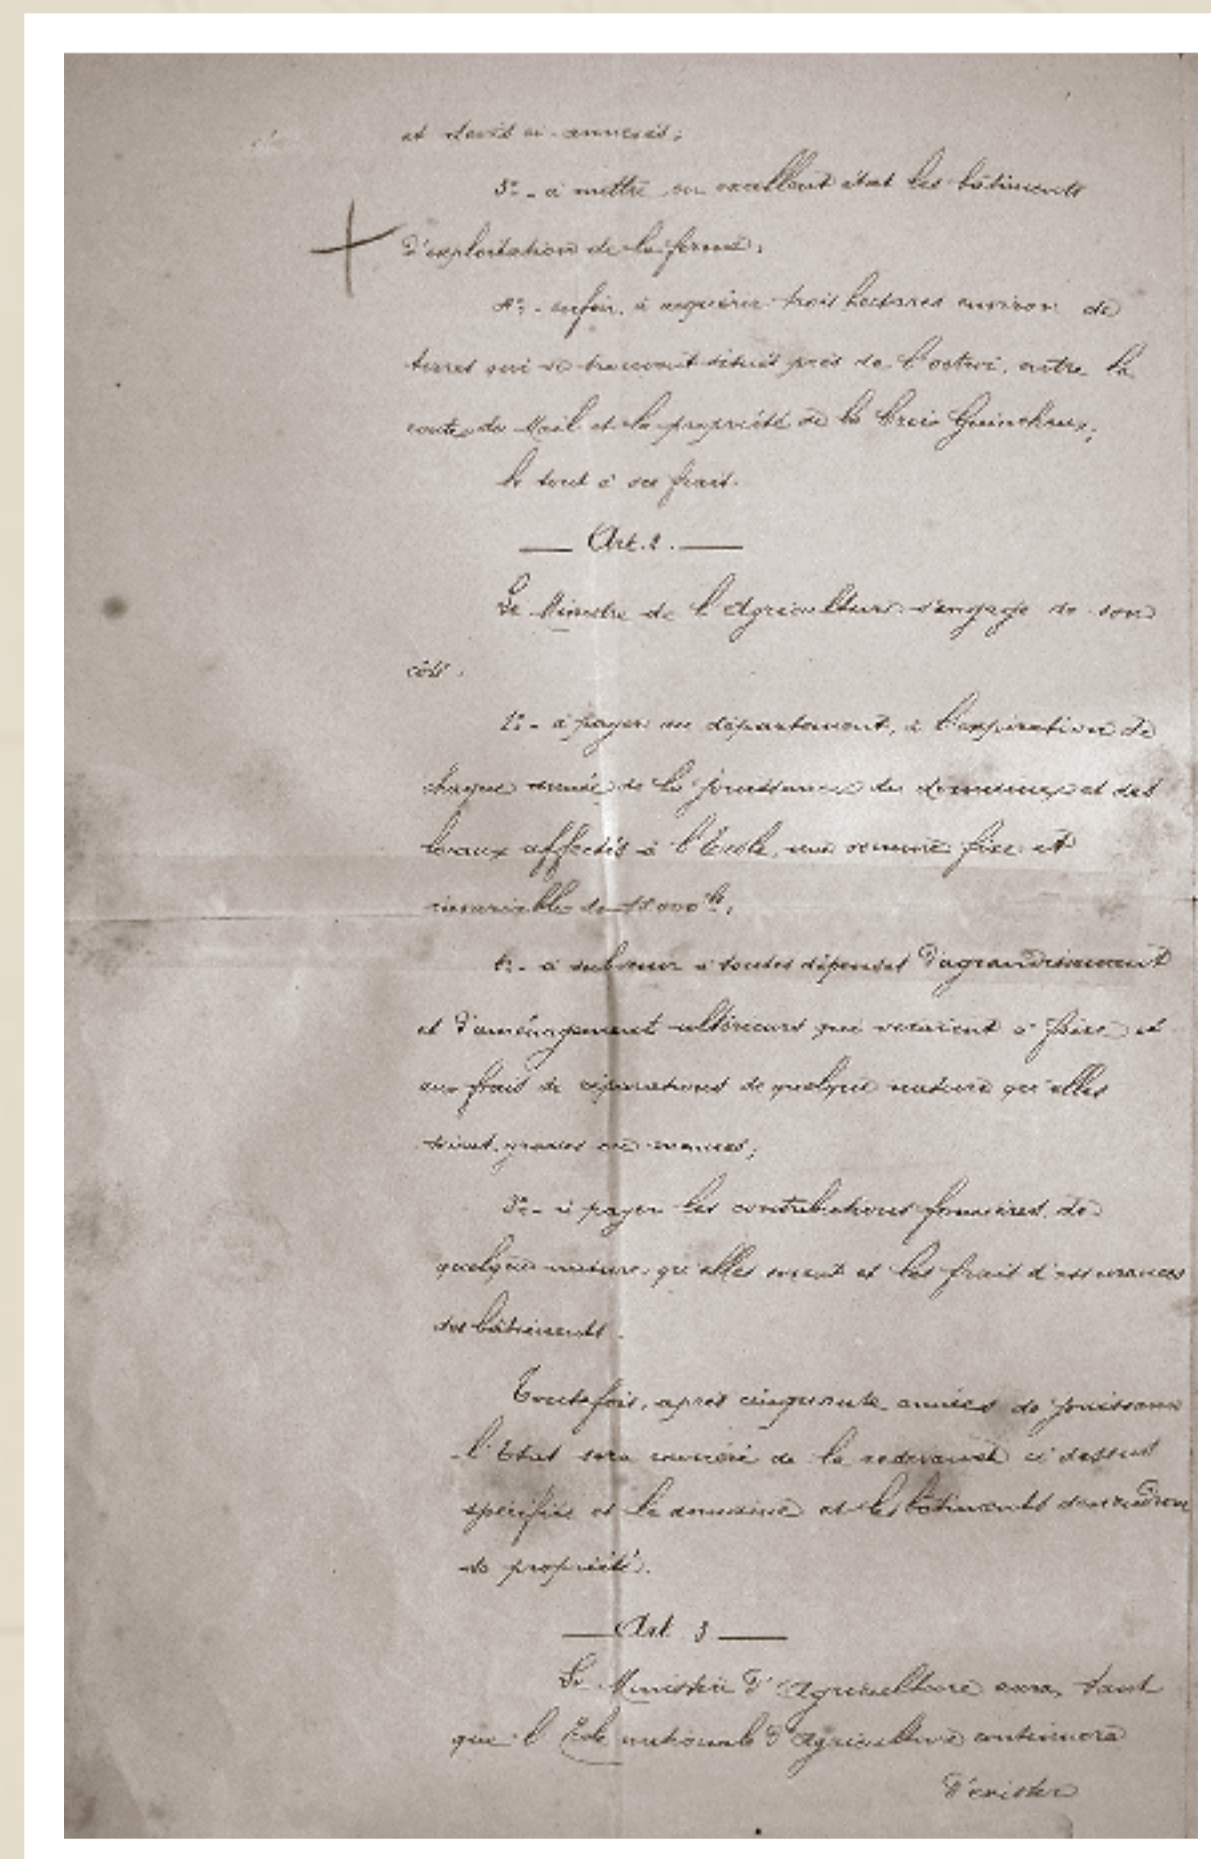 et devis ci-annexés;
3º - à mettre en excellent état les bâtiments
d'exploitation de la ferme;
4º - enfin, à acquérir trois hectares environ de
terres qui se trouvent situés près de l'octroi, entre la
route du Mail et la propriété de la Croix
le tout à ses frais.
Art. 2.
Le Ministre de l'Agriculture s'engage de son
côté.
1º - à payer au département, à l'expiration de
chaque année de la jouissance du domaine et des
locaux affectés à l'Ecole, une somme fixe et
invariable de
2º - à subvenir à toutes dépenses d'agrandissement
et d'aménagement ultérieurs qui seraient à faire et
aux frais de réparations de quelque nature qu'elles
soient, grosses ou menues;
3º - à payer les contributions foncières, de
quelque nature qu'elles soient et les frais d'assurances
des bâtiments.
Toutefois, après cinquante années de jouissance
l'Etat sera exonéré de la redevance ci dessus
spécifiée et le domaine et les bâtiments deviendront
sa propriété.
Art. 3
Le Ministère d'Agriculture aura, tant
que l'Ecole nationale d'Agriculture continuera
d'exister